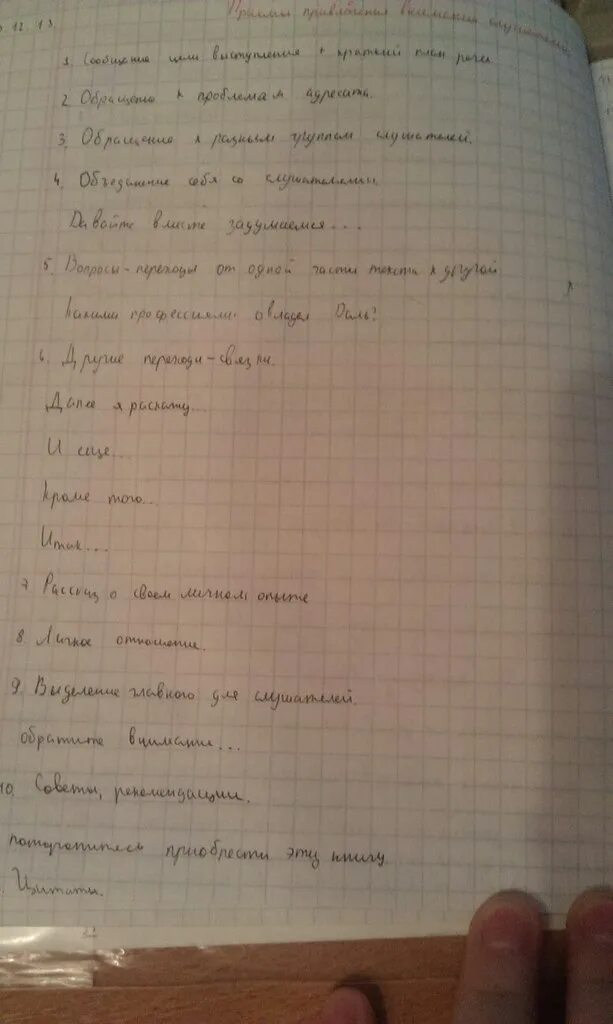 12.13 Приёмы привлечения внимания слушателей
1. Сообщение цели выступления + краткий план речи
2. Обращение к проблемам адресата.
3. Обращение к разным группам слушателей.
4. Объединение себя со слушателями.
Давайте вместе задумаемся...
5. Вопросы-переходы от одной части текста к другой
Какими профессиями овладел Даль?
6. Другие переходы-связки.
Далее я расскажу...
И еще...
Кроме того...
Итак...
7 Рассказ о своем личном опыте
8. Личное отношение.
9. Выделение главного для слушателей.
обратите внимание...
10. Советы, рекомендации.
поторопитесь приобрести эту книгу
Цитаты.